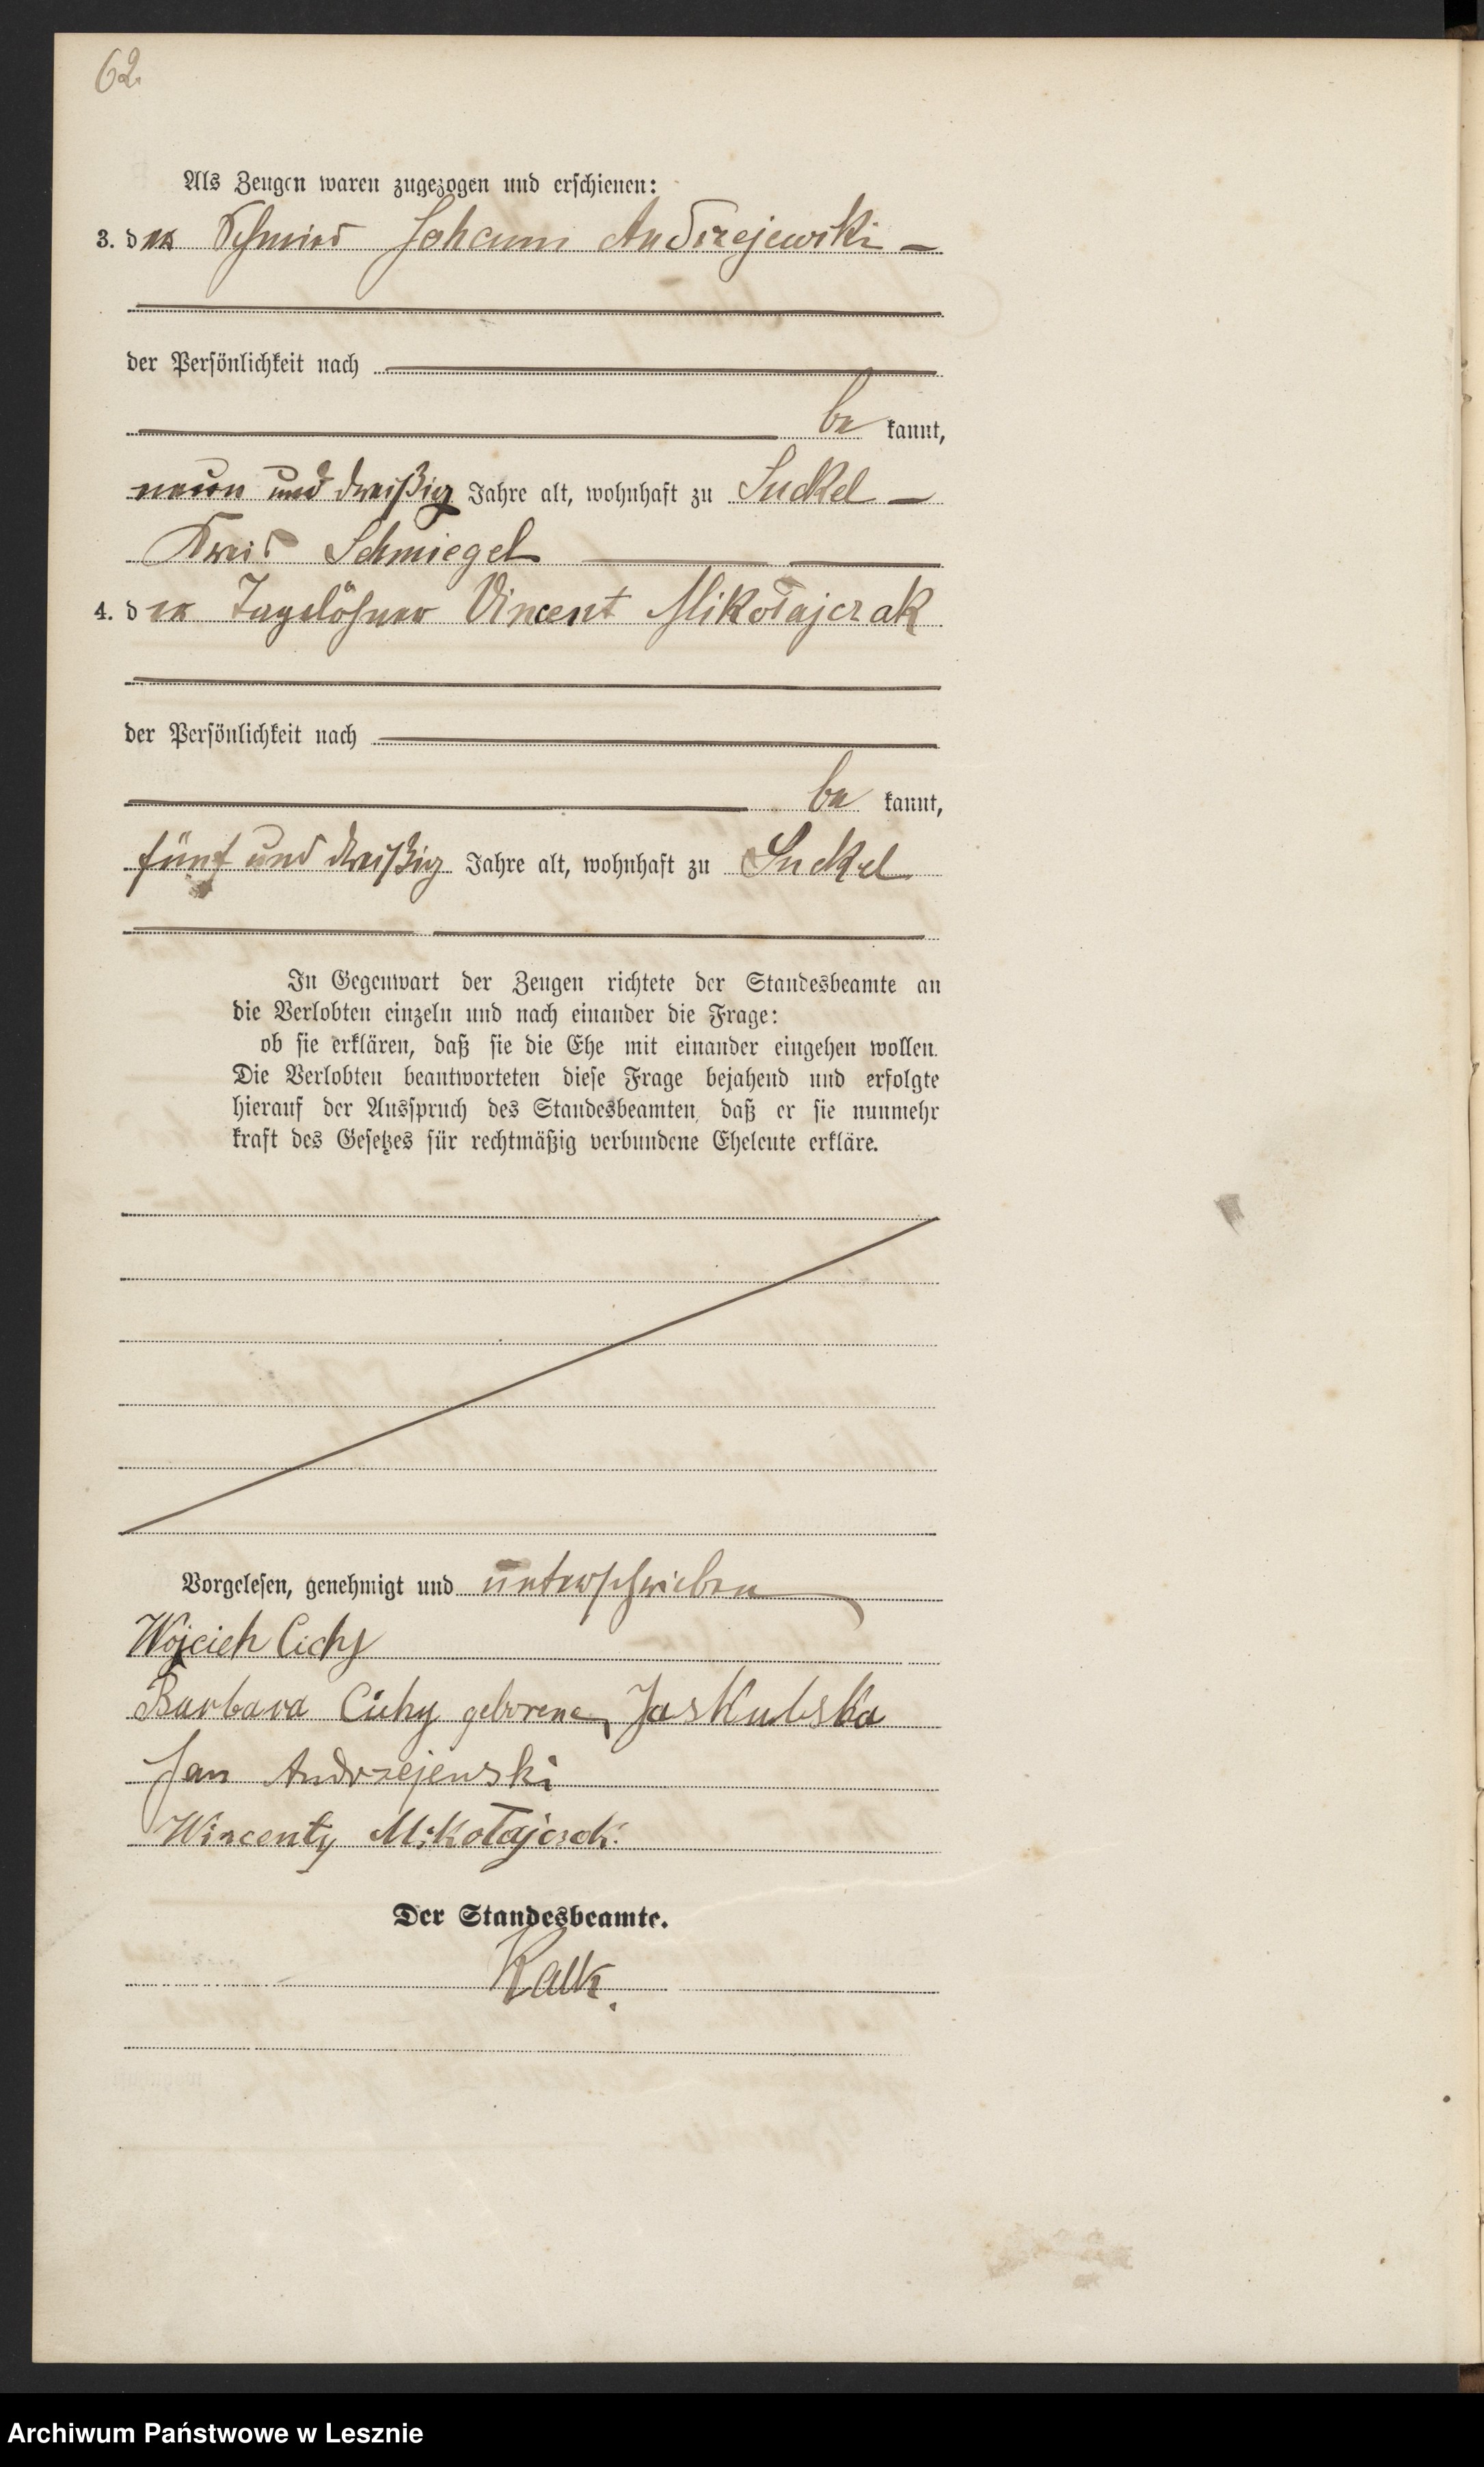 62.
Als Zeugen waren zugezogen und erschienen:
3. der Schmied Johann Andrzejewski
der Persönlichkeit nach
be kannt,
neun und dreißig Jahre alt, wohnhaft zu Suckel
Kreis Schmiegel
4. der Tagelöhner Vincent Mikołajczak
der Persönlichkeit nach
be kannt,
fünf und dreißig Jahre alt, wohnhaft zu Suckel
In Gegenwart der Zeugen richtete der Standesbeamte an
die Verlobten einzeln und nach einander die Frage:
ob sie erklären, daß sie die Ehe mit einander eingehen wollen.
Die Verlobten beantworteten diese Frage bejahend und erfolgte
hierauf der Ausspruch des Standesbeamten, daß er sie nunmehr
kraft des Gesetzes für rechtmäßig verbundene Eheleute erkläre.
Vorgelesen, genehmigt und unterschrieben
Wojcieh Cichy
Barbara Cichy geborene Jaskulska
Jan Andrzejewski
Wincenty Mikołajczak
Der Standesbeamte.
Kalk.
Archiwum Państwowe w Lesznie